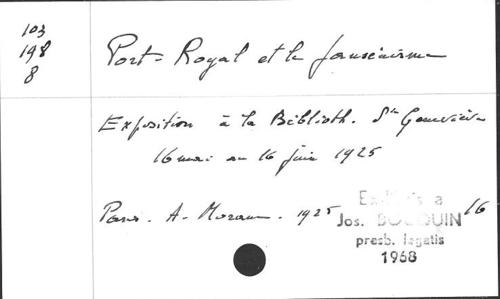 103
198
8
Port-Royal et le Jansénisme
Exposition à la Biblioth. Ste Geneviève
16 mai au 16 juin 1925
Paris. A. 1925 16
Ex libris a
Jos. BOUQUIN
presb. legatis
1968